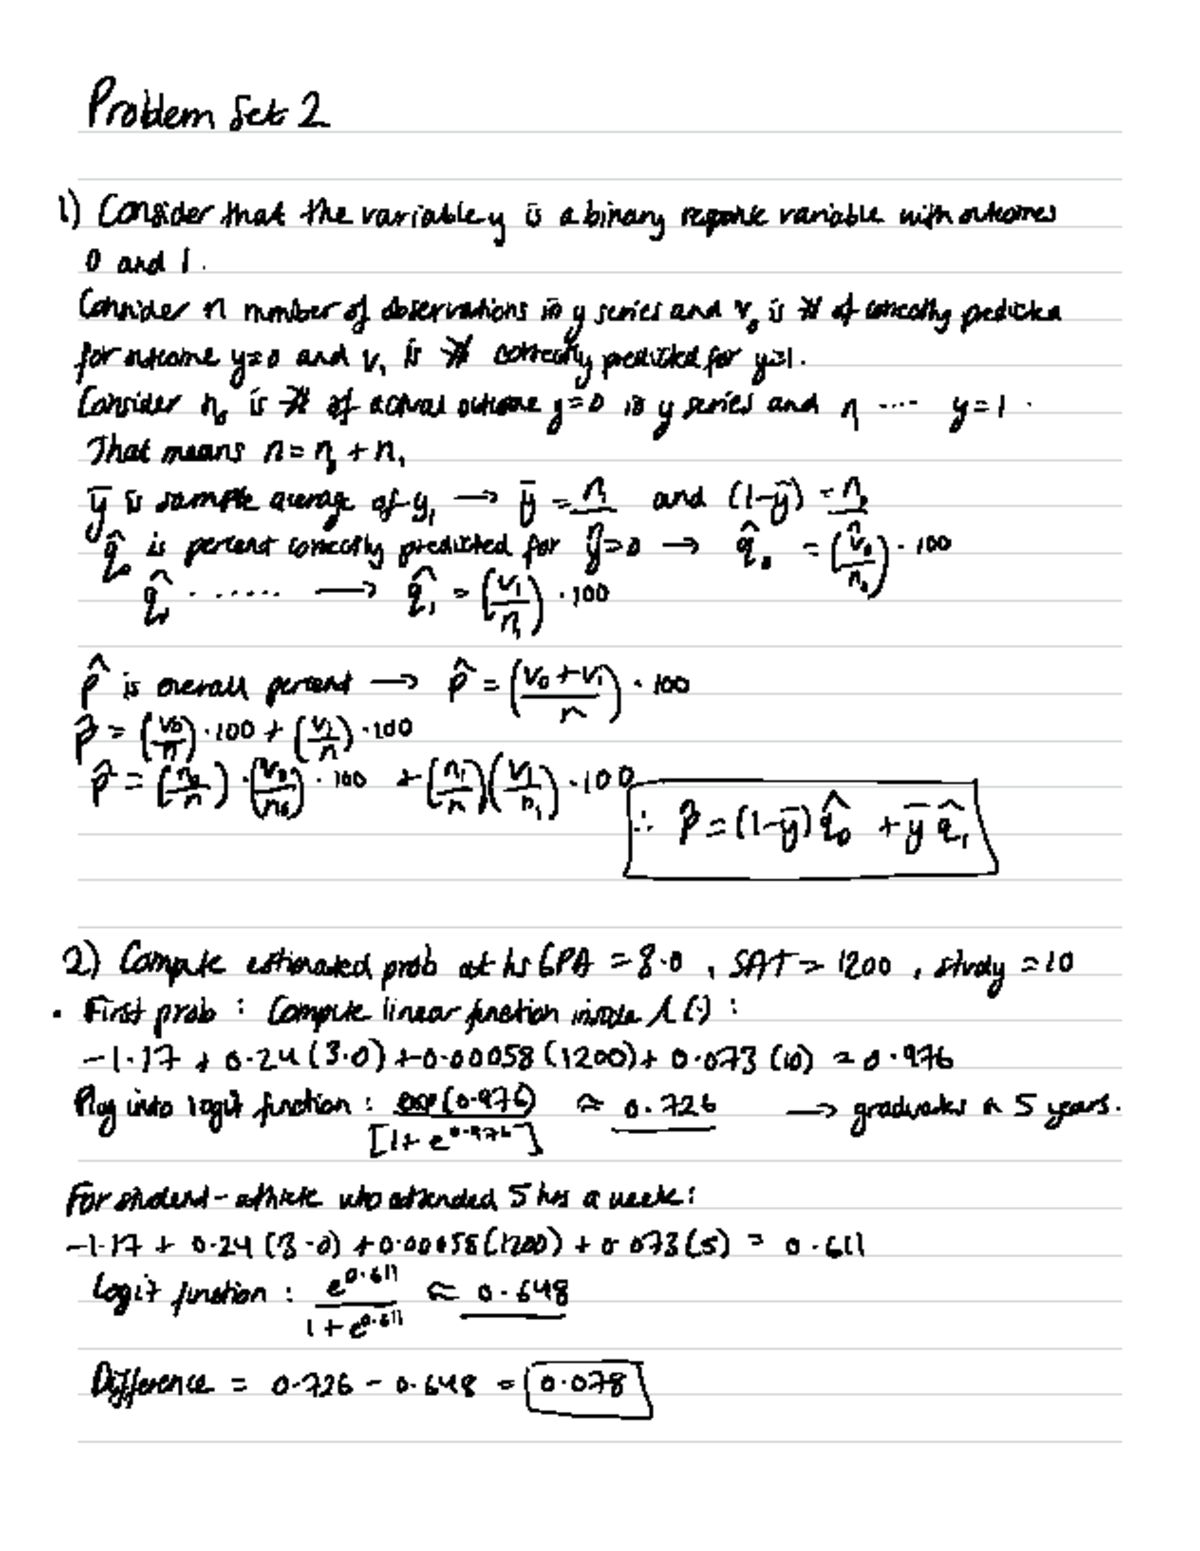 Problem Set 2
1) Consider that the variable y is a binary response variable with outcomes
0 and 1.
Consider n number of observations in y series and v₀ is # of correctly predicted
for outcome y=0 and v₁ is # correctly predicted for y=1.
Consider n₀ is # of actual outcome y=0 in y series and n₁ ···· y=1 .
That means n = n₀ + n₁
ȳ is sample average of y, → ȳ = n₁ and (1-ȳ) = n₀
q̂₀ is percent correctly predicted for ŷ=0 → q̂₀ = (v₀/n₀) · 100
q̂₁ ······ → q̂₁ = (v₁/n₁) · 100
p̂ is overall percent → p̂ = ((v₀+v₁)/n) · 100
p̂ = (v₀/n) · 100 + (v₁/n) · 100
p̂ = (n₀/n) · (v₀/n₀) · 100 + (n₁/n)(v₁/n₁) · 100
∴ p̂ = (1-ȳ) q̂₀ + ȳ q̂₁
2) Compute estimated prob at hsGPA = 3.0 , SAT = 1200 , study = 10
• First prob : Compute linear function inside Λ(·) :
-1.17 + 0.24 (3.0) + 0.00058 (1200) + 0.073 (10) = 0.976
Plug into logit function : exp(0.976)/[1+ e^0.976] ≈ 0.726 → graduates in 5 years.
For student-athlete who attended 5 hrs a week:
-1.17 + 0.24 (3.0) + 0.00058 (1200) + 0.073 (5) = 0.611
Logit function : e^0.611/(1+e^0.611) ≈ 0.648
Difference = 0.726 - 0.648 = 0.078